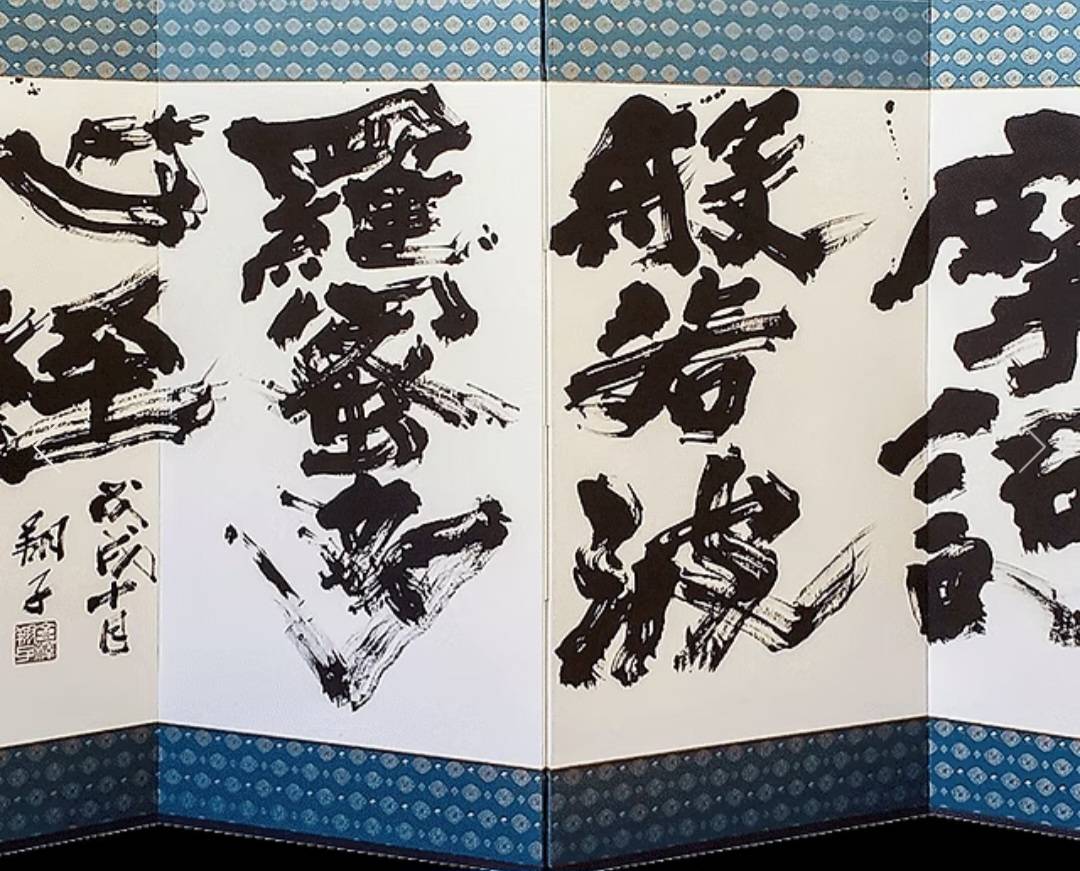 摩訶
般若波
羅蜜多
心経
戊戌十月
翔子